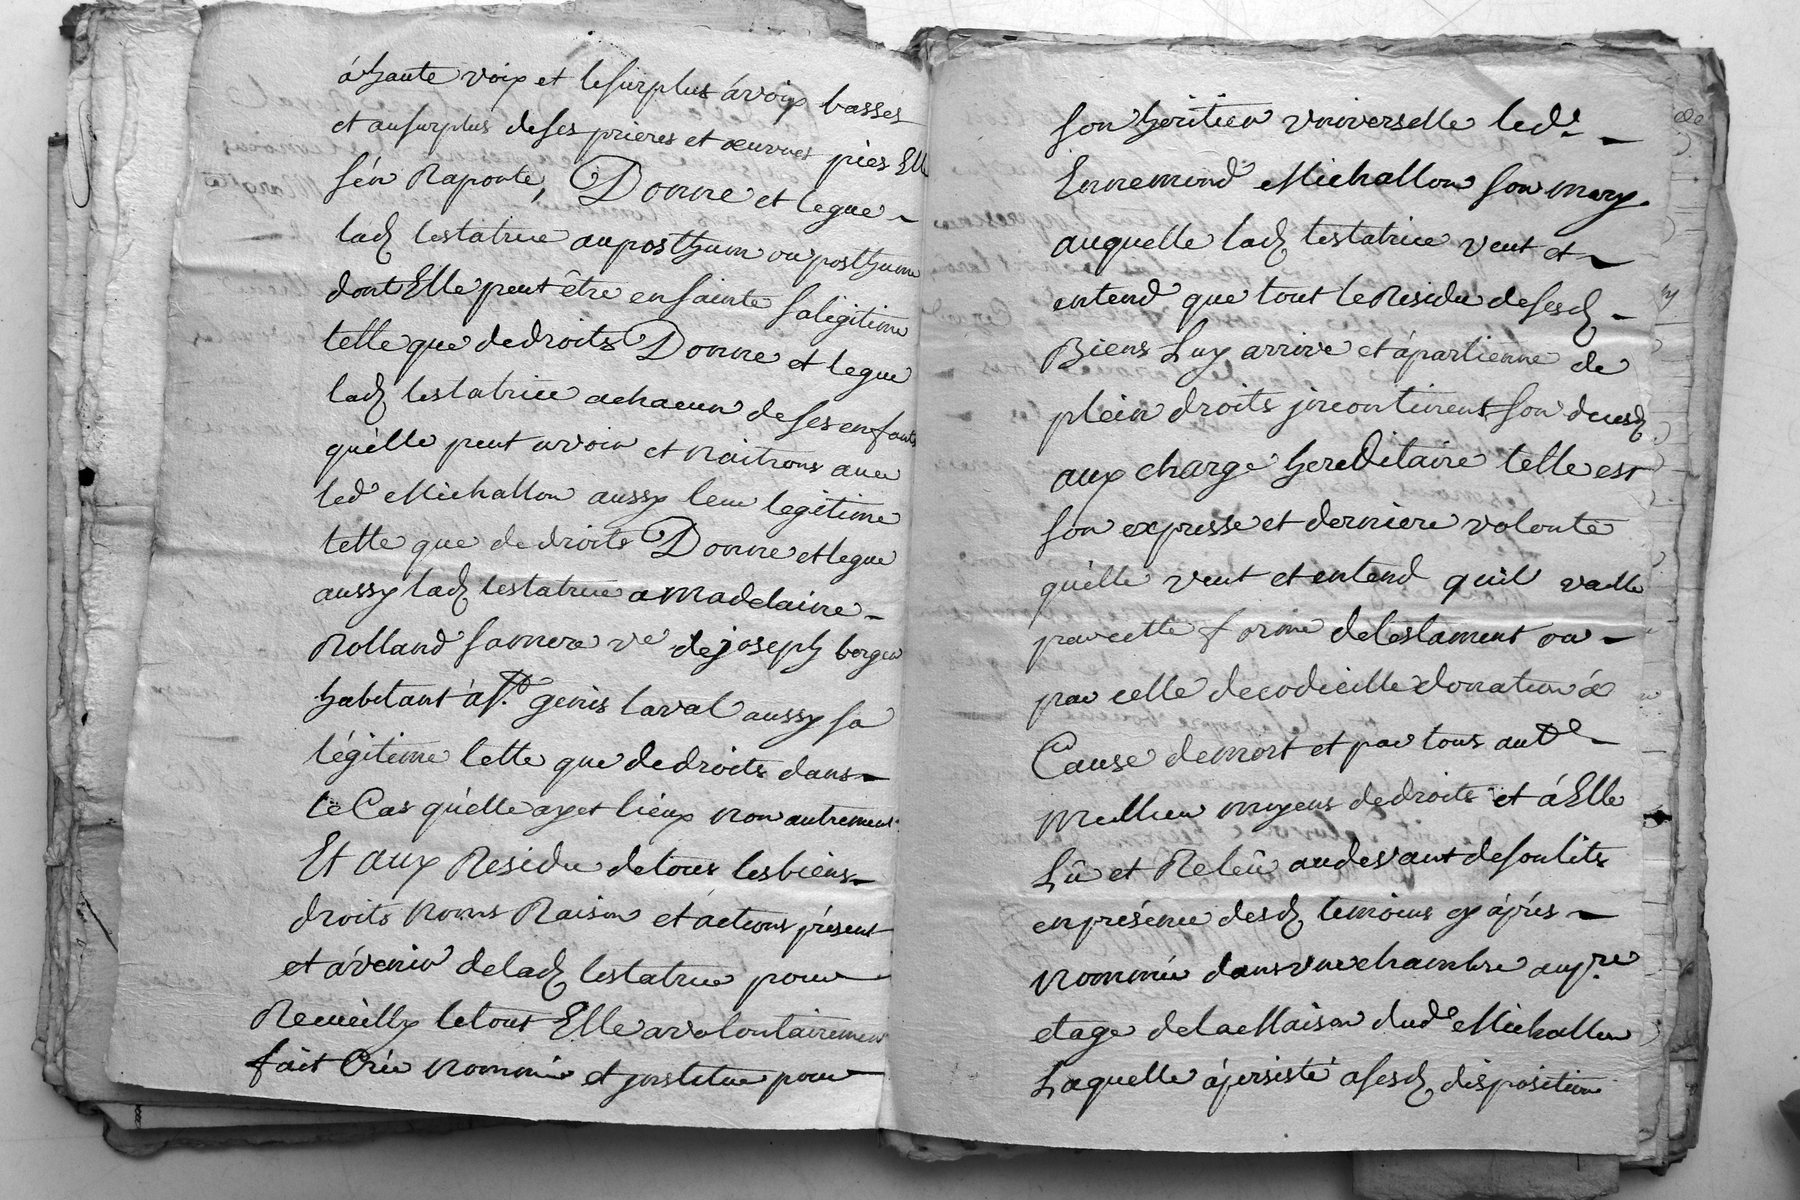 à haute voix et le surplus à voix basses
et au surplus de ses prieres et œuvres pies Elle
s'en Raporte, Donne et legue
lad. testatrice au posthum ou posthume
dont Elle peut être ensainte sa légitime
telle que de droits Donne et legue
lad. testatrice a chacun de ses enfants
qu'elle peut avoir et naitrons avec
led. Michallon aussy leur legitime
telle que de droits Donne et legue
aussy lad. testatrice a Madelaine
Rolland sa mere ve. de joseph berger
habitant à St. genis laval aussy sa
légitime telle que de droits dans
le Cas qu'elle ayet lieux non autrement
Et aux Residu de tous les biens
droits Noms Raison et actions présent
et à venir de lad. testatrice pour
Recueilly le tout Elle a volontairement
fait Crée nommé et institue pour
son heritier universelle led.
Ennemond Michallon son mary
auquelle lad. testatrice veut et
entend que tout le Residu de sesd.
Biens Luy arrive et apartienne de
plein droits incontinent son decesd.
aux charge hereditaire telle est
son expresse et derniere volonte
qu'elle veut et entend qu'il vaille
par cette forme de testament ou
par celle de codicille donation à
Cause de mort et par tous autre
meilleur moyens de droits et à Elle
Lû et Releû au devant de son lits
en présence desd. temoins cy après
nommée dans une chambre au pre.
etage de la Maison dud. Michallon
Laquelle à persisté a sesd. disposition